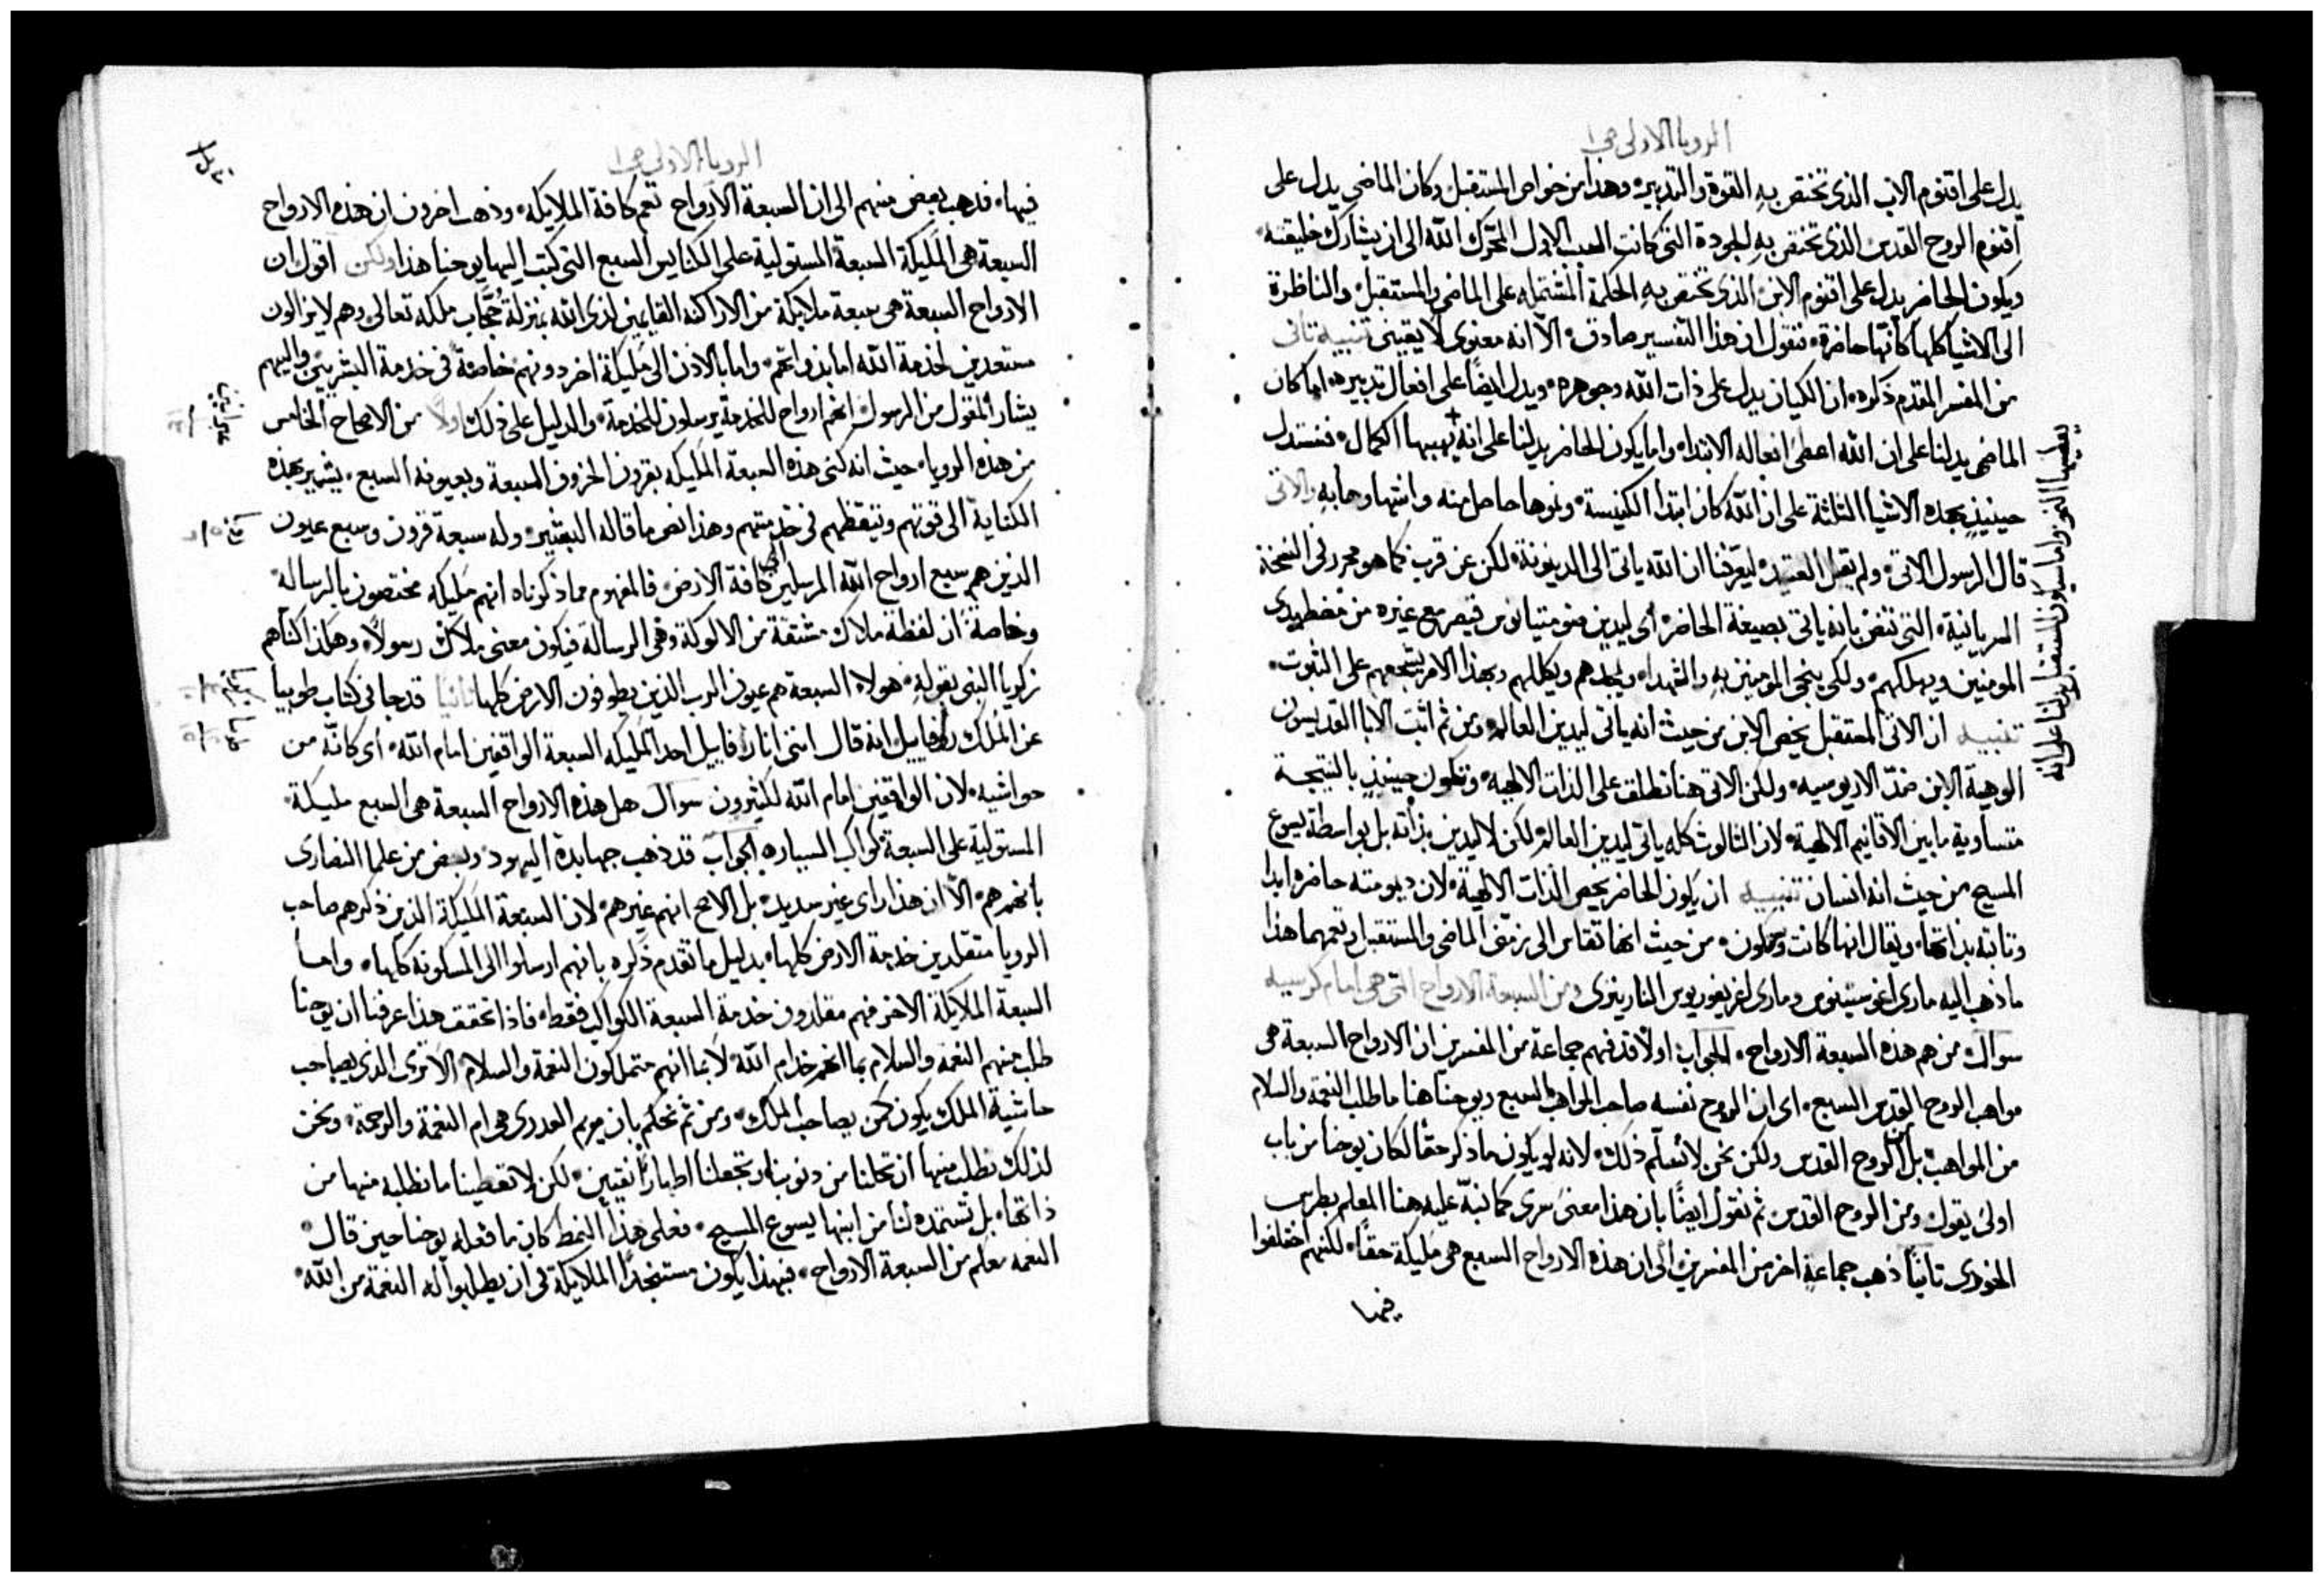 الرويا الاولى صح ا
يدل على اقنوم الاب الذى تختص به القوة والتدبير وهذا من خواص المستقبل وكان الماضى يدل على
اقنوم الروح القدس الذى تختص به الجودة التى كانت السبب الاول المحرك الله الى ان يشارك خليقته
ويكون الحاضر يدل على اقنوم الابن الذى تختص به الحكمة المشتمله على الماضى والمستقبل والناظرة
الى الاشيا كلها كانها حاضرة فنقول ان هذا التفسير صادق الا انه معنوى لا يقينى تنبيه ثانى
من المفسر المقدم ذكره ان الكيان يدل على ذات الله وجوهره ويدل ايضا على افعال تدبيره اما كان
الماضى يدلنا على ان الله اعطى افعاله الابتدا واما يكون الحاضر يدلنا على انه يهبها الكمال فنستدل
حينيذ بهذه الاشيا الثلثة على ان الله كان ابتدا الكنيسة ونموها حاصل منه وانتهاوها به والاتى
قال الرسول الاتى ولم يقل العتيد ليعرفنا ان الله ياتى الى الدينونة لكن عن قرب كما هو محرر فى النسخة
السريانية التى تنص بانه ياتى بصيغة الحاضر اى ليدين ضوميتيانوس قيصر مع غيره من مضطهدى
المومنين ويهلكهم ولكى ينجى المومنين به والشهدا ويمجدهم ويكللهم وبهذا الامر يشجعهم على الثبوت
تنبيه ان الاتى المستقبل يخص الابن من حيث انه ياتى ليدين العالم ومن ثم اثبت الابا القديسون
الوهية الابن ضد الاريوسيه ولكن الاتى هنا تطلق على الذات الالهيه وتكون حينيذ بالنتيجة
متساوية ما بين الاقانيم الالهية لان الثالوث كله ياتى ليدين العالم لكن لا ليدين بذاته بل بواسطة يسوع
المسيح من حيث انه انسان تنبيه ان يكون الحاضر يخص الذات الالهية لان ديمومته حاضره ابدا
وثابته بذاتها ويقال انها كانت وستكون من حيث انها تقاس الى زمنى الماضى والمستقبل وتعمهما هذا
ما ذهب اليه مارى اغوسطينوس ومارى اغريغوريوس النازينزى ومن السبعة الارواح التى هى امام كرسيه
سوال من هم هذه السبعة الارواح الجواب اولا قد فهم جماعة من المفسرين ان الارواح السبعة هى
مواهب الروح القدس السبع اى ان الروح نفسه صاحب المواهب السبع ويوحنا هنا ما طلب النعمة والسلام
من المواهب بل من الروح القدس ولكن نحن لا نسلم ذلك لانه لو يكون ما ذكر حقا لكان يوحنا من باب
اولى يقول ومن الروح القدس ثم نقول ايضا بان هذا معنى سرى كما نبه عليه هنا المعلم بطرس
الخورى ثانيا ذهب جماعة اخر من المفسرين الى ان هذه الارواح السبع هى مليكة حقا لكنهم اختلفوا
فيها
يعطيها النمو واما سيكون المستقبل يدلنا على انه
الرويا الاولى صح ا
فيها فذهب بعض منهم الى ان السبعة الارواح تعم كافة الملايكه وذهب اخرون ان هذه الارواح
السبعة هى المليكة السبعة المستولية على الكنايس السبع التى كتب اليها يوحنا هذا ولكن اقول ان
الارواح السبعة هى سبعة ملايكة من الاراكنه القايمين لدى الله بمنزلة حجاب ملكه تعالى وهم لا يزالون
مستعدين لخدمة الله اما بذواتهم واما بالاذن الى مليكة اخر دونهم خاصة فى خدمة البشريين واليهم
يشار المقول من الرسول انهم ارواح للخدمة يرسلون للخدمة والدليل على ذلك اولا من الاصحاح الخامس
من هذه الرويا حيث انه كنى هذه السبعة المليكه بقرون الخروف السبعة وبعيونه السبع يشير بهذه
الكناية الى قوتهم وتيقظهم فى خدمتهم وهذا نص ما قاله البشير وله سبعة قرون وسبع عيون
الذين هم سبع ارواح الله المرسلين الى كافة الارض فالمفهوم مما ذكرناه انهم مليكه مختصون بالرساله
وخاصة ان لفظة ملاك مشتقة من الالوكة وهى الرسالة فيكون معنى ملاك رسولا وهكذا كناهم
زكريا النبى بقوله هولاء السبعة هم عيون الرب الذين يطوفون الارض كلها ثانيا قد جا فى كتاب طوبيا
عن الملاك رافاييل انه قال اننى انا رافاييل احد المليكه السبعة الواقفين امام الله اى كانه من
حواشيه لان الواقفين امام الله لكثيرون سوال هل هذه الارواح السبعة هى السبع مليكة
المستولية على السبعة كواكب السياره الجواب قد ذهب جهابدة اليهود وبعض من علما النصارى
بانهم هم الا ان هذا راى غير سديد بل الاصح انهم غيرهم لان السبعة المليكة الذين ذكرهم صاحب
الرويا متقلدين خدمة الارض كلها بدليل ما تقدم ذكره بانهم ارسلوا الى المسكونه كلها واما
السبعة الملايكة الاخر فهم مقلدون خدمة السبعة الكواكب فقط فاذا تحقق هذا عرفنا ان يوحنا
طلب منهم النعمه والسلام بما انهم خدام الله لا بما انهم متملكون النعمة والسلام الا ترى الذى يصاحب
حاشية الملك يكون كمن يصاحب الملك ومن ثم نحكم بان مريم العدرى هى ام النعمة والرحمة ونحن
لذلك نطلب منها ان تحلنا من ذنوبنا وتجعلنا اطهارا نقيين لكن لا تعطينا ما نطلبه منها من
ذاتها بل تستمده لنا من ابنها يسوع المسيح فعلى هذا النمط كان ما فعله يوحنا حين قال
النعمه معكم من السبعة الارواح فبهذا يكون مستنجدا الملايكة فى ان يطلبوا له النعمة من الله
عبرانيين
زكريا
طوبيا